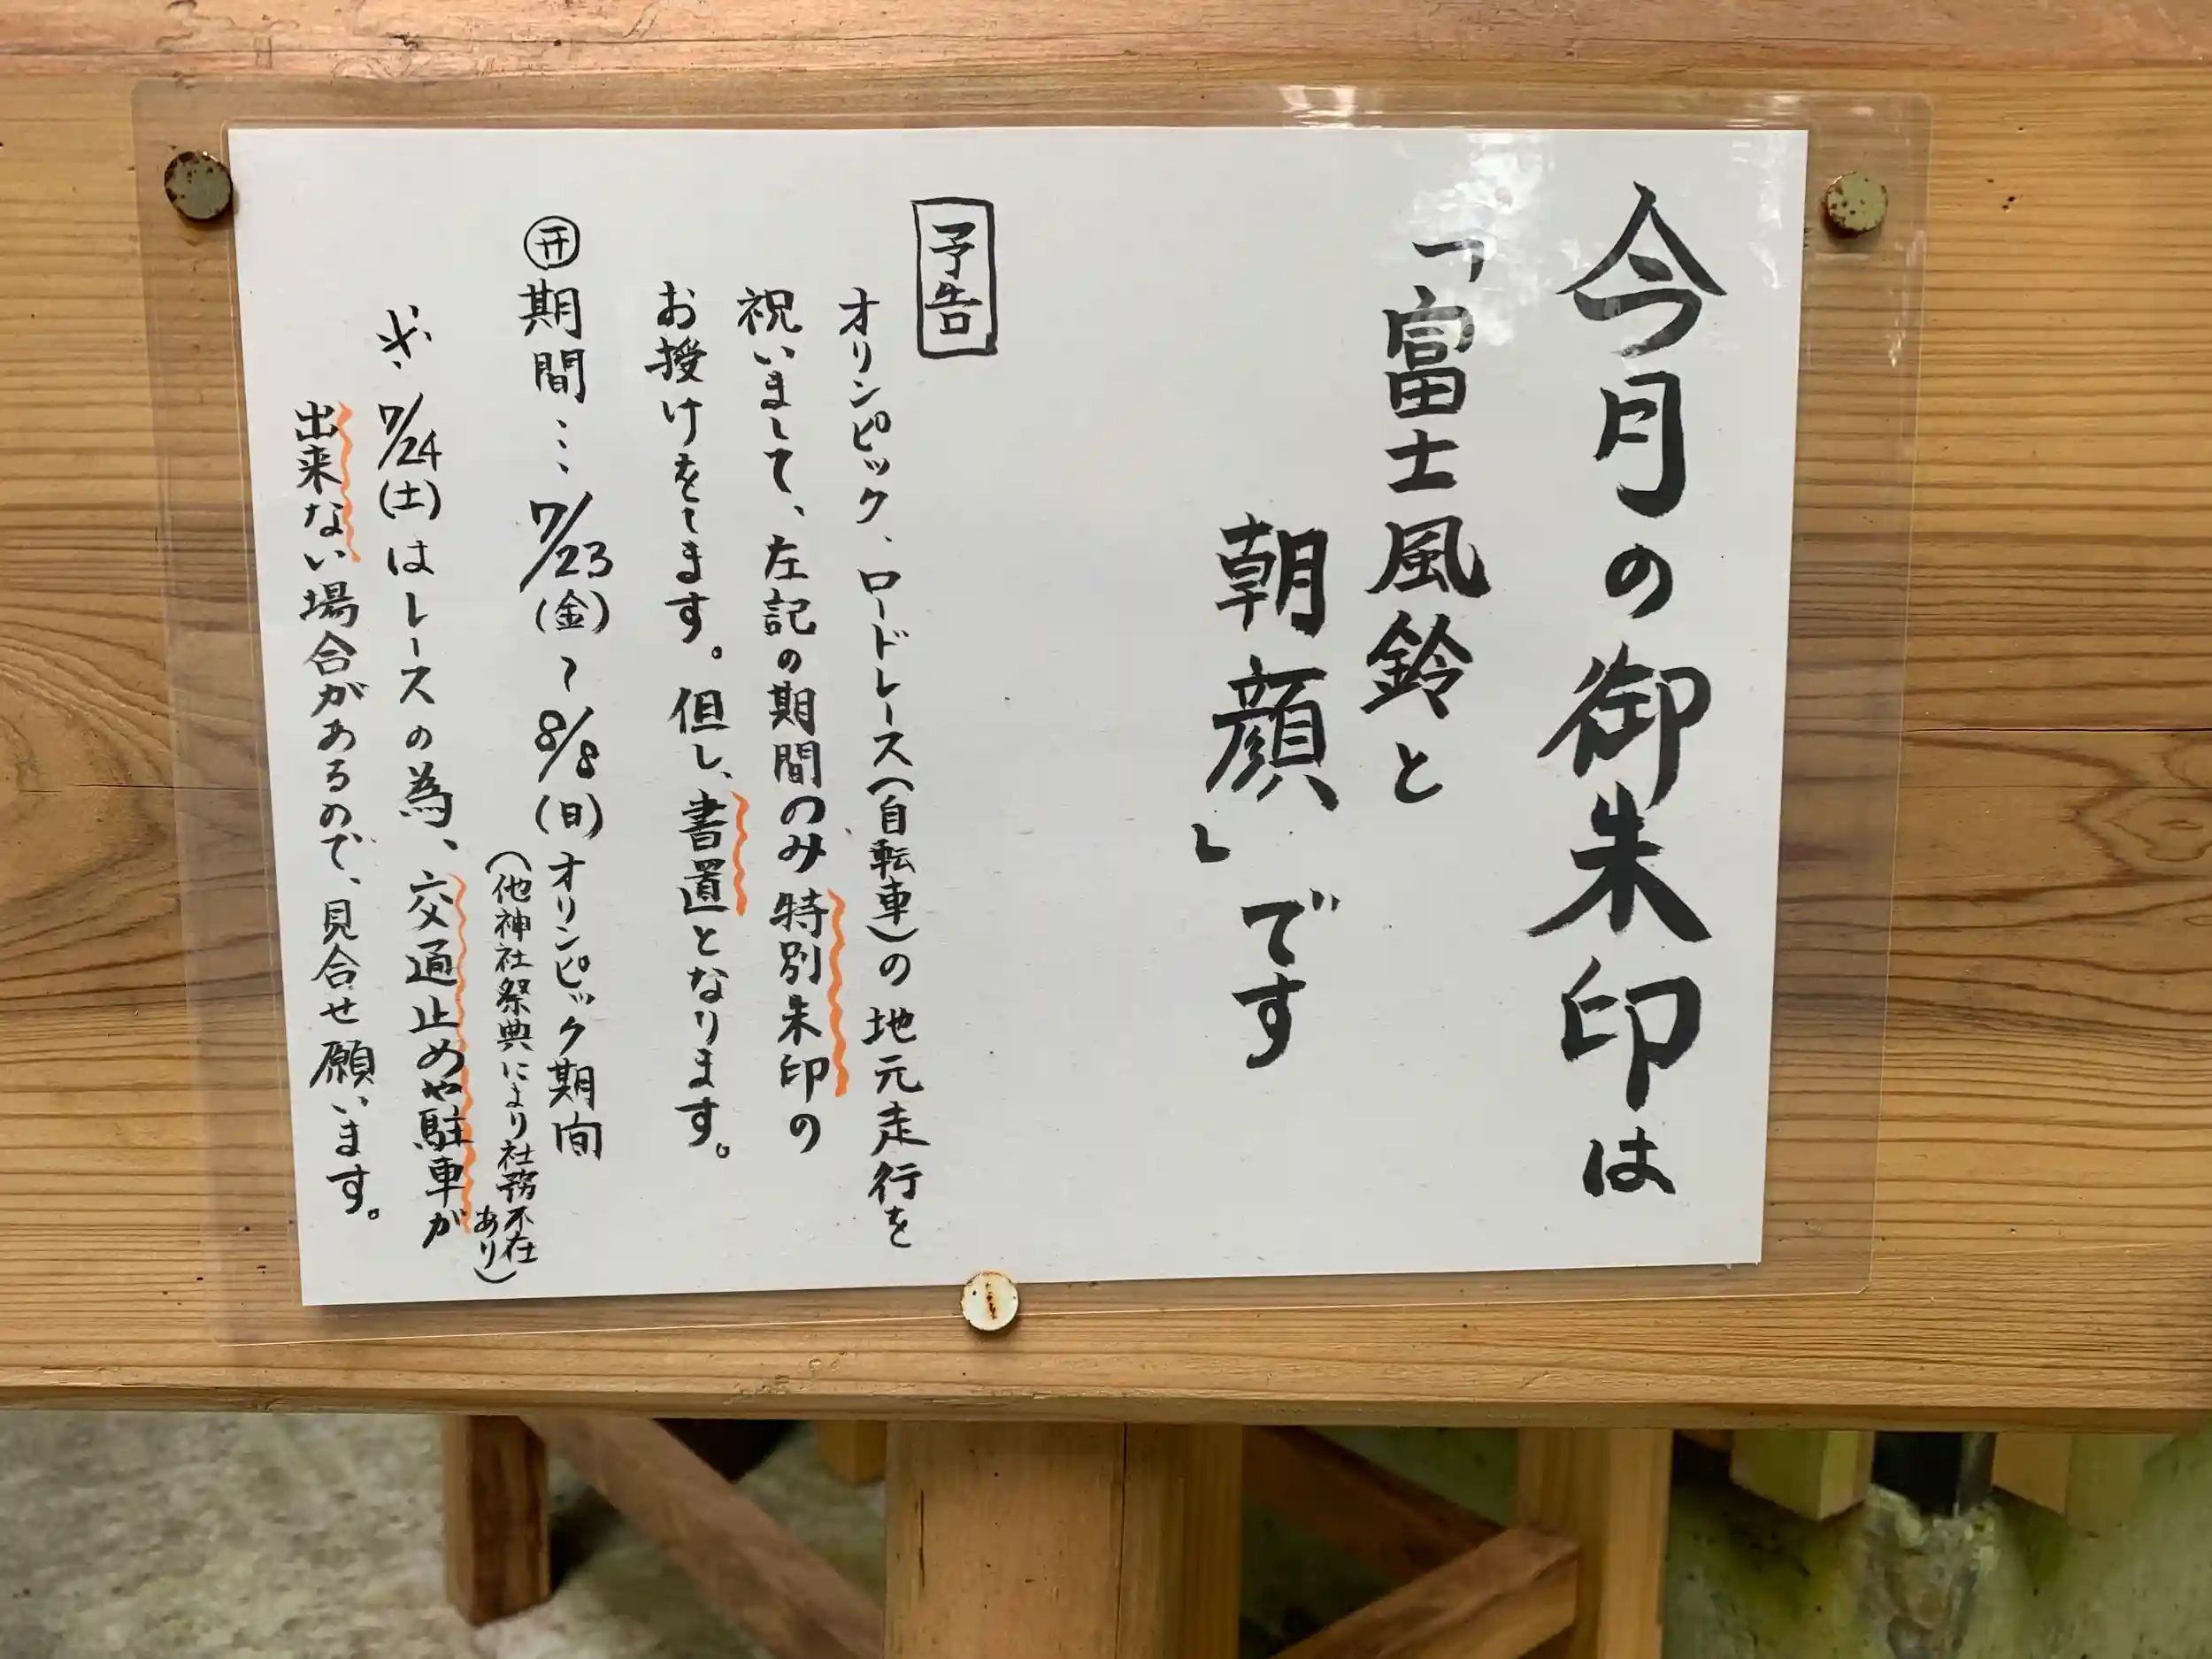 今月の御朱印は
「富士風鈴と
朝顔」です
予告
オリンピック、ロードレース(自転車)の地元走行を
祝いまして、左記の期間のみ特別朱印の
お授けをします。但し、書置となります。
期間…7/23(金)〜8/8(日)オリンピック期間
(他神社祭典により社務不在
あり)
※7/24(土)はレースの為、交通止めや駐車が
出来ない場合があるので、見合せ願います。